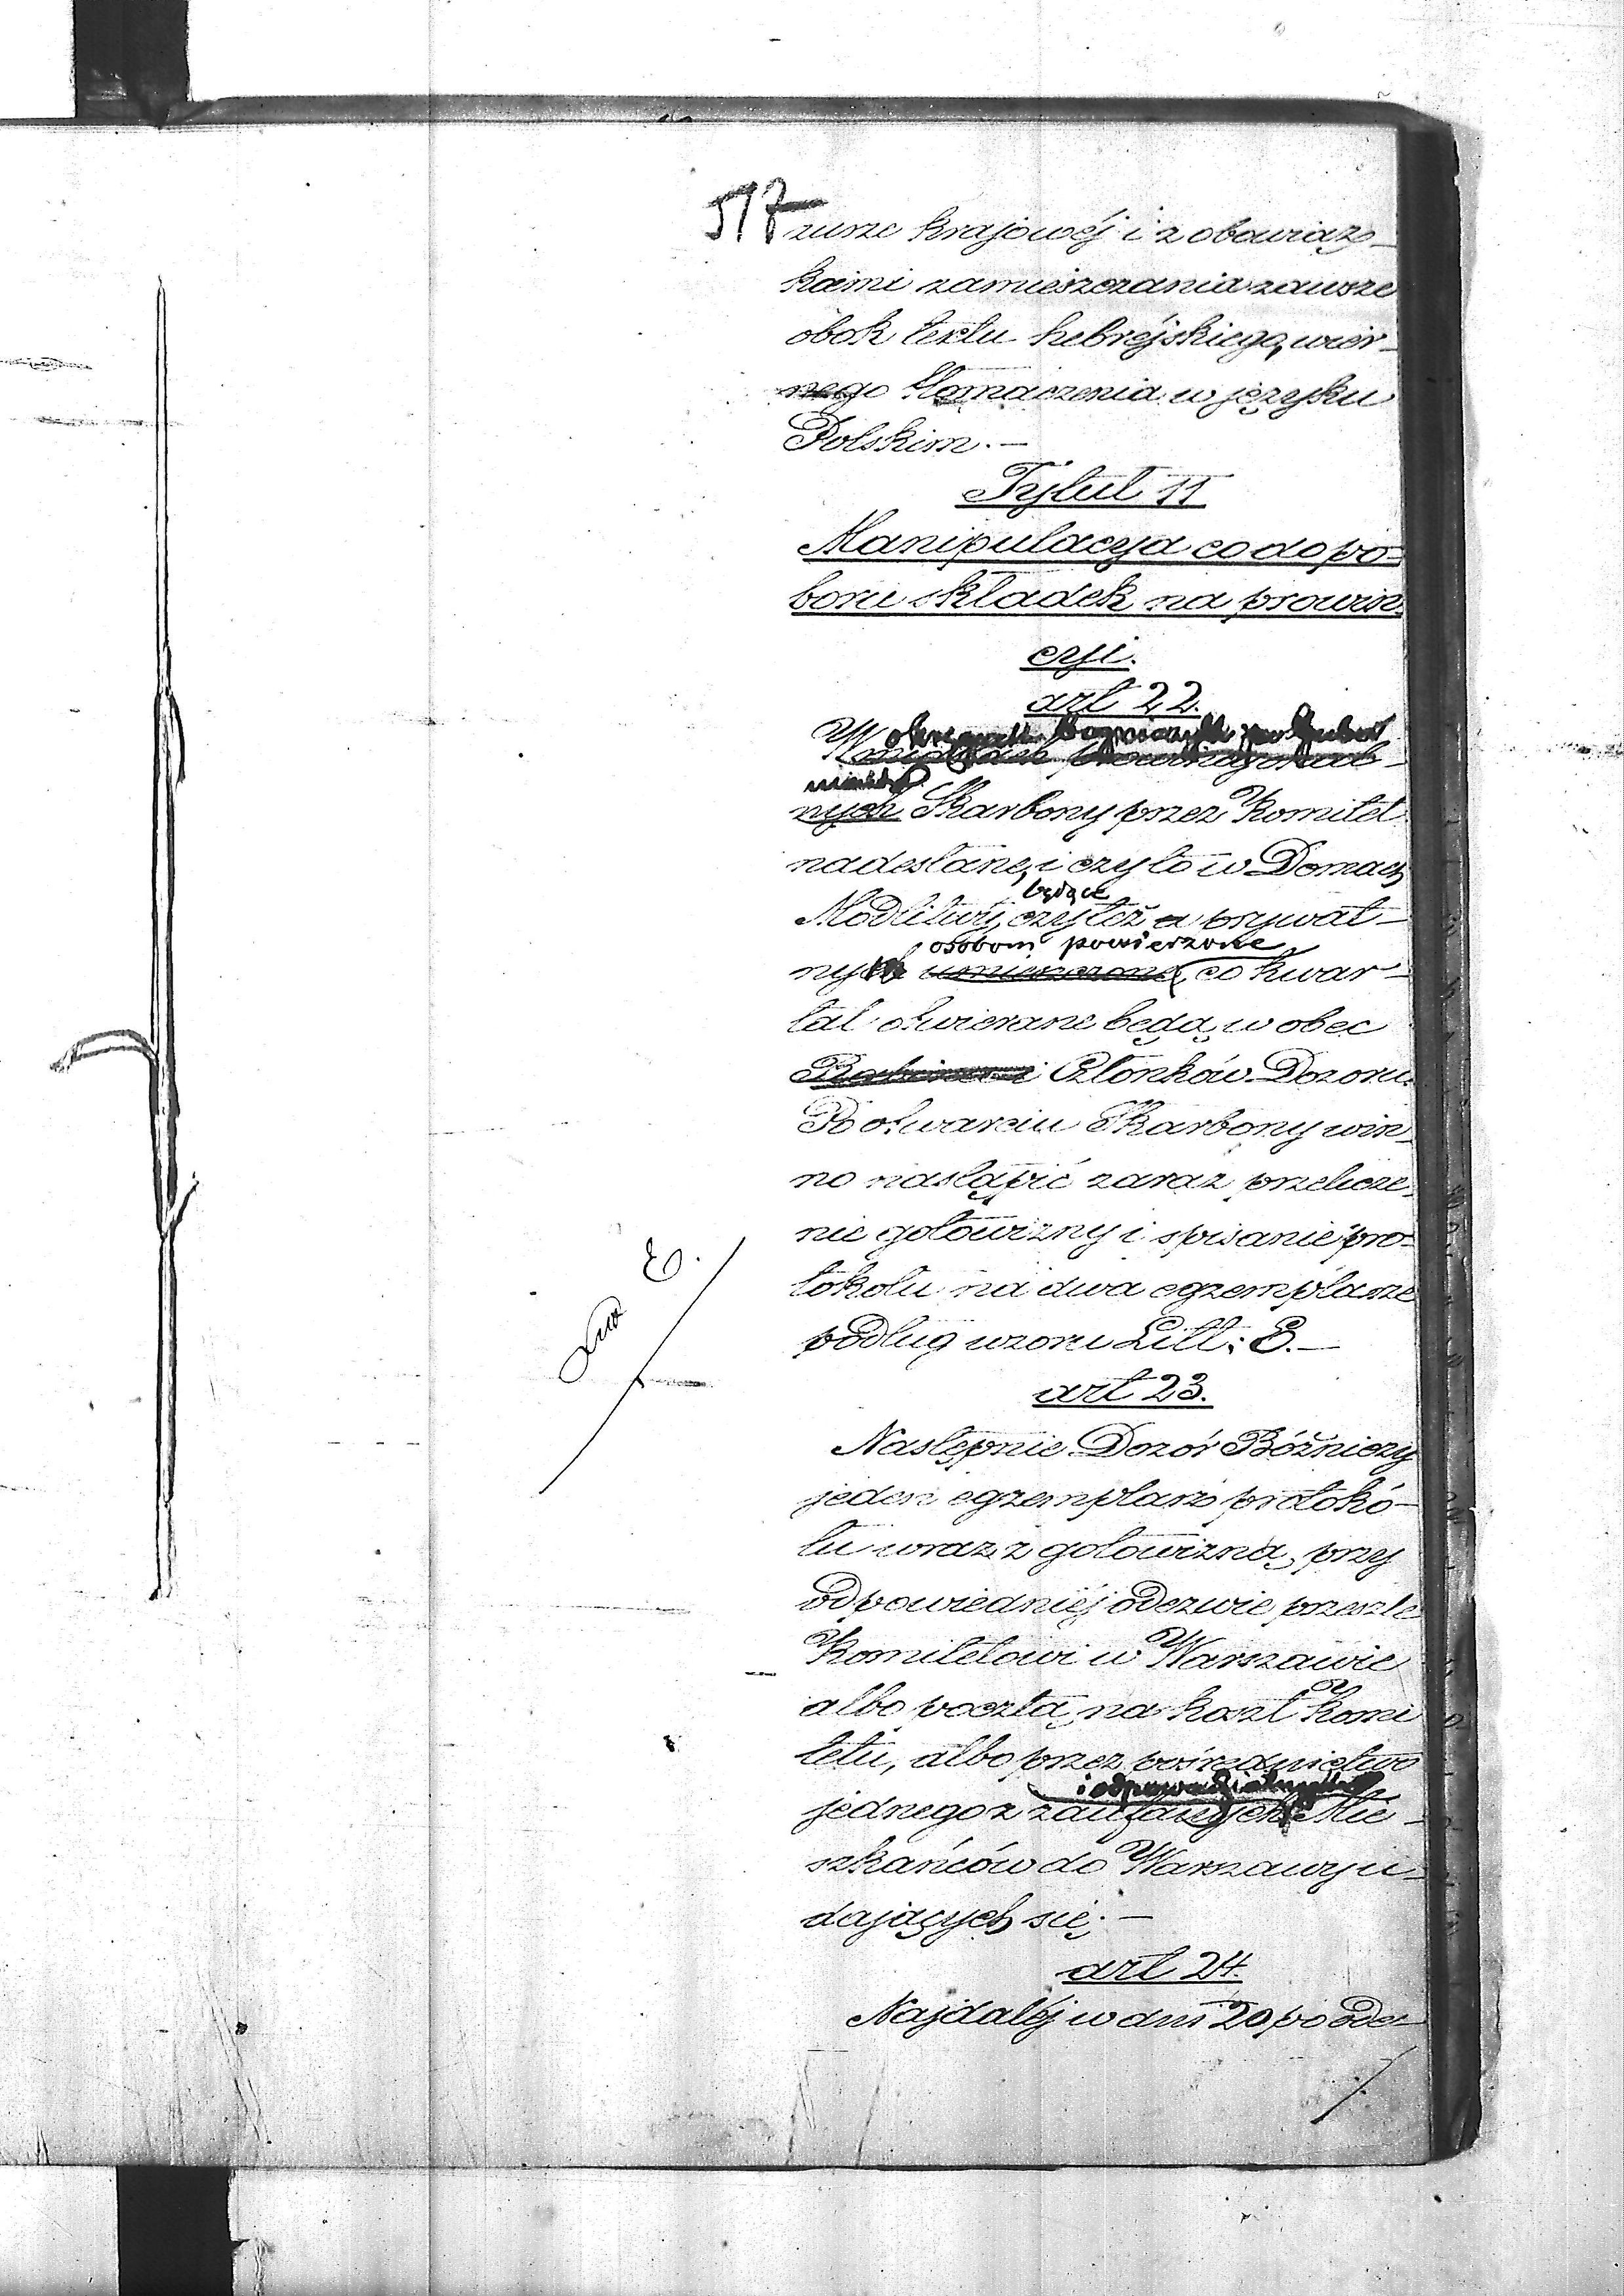 517
zurze krajowéj i z obowiąz-
kami zamieszczania zawsze
obok textu hebrejskiego, wier-
nego tłomaczenia w języku
Polskim.-
Tytuł 11
Manipulacya co do po-
boru składek na prowin-
cyi.
art 22.
okręgach Bożniczych po Guber
W
niach
nych Skarbony przez Komitet
nadesłane, i czy to w Domach
będące
Modlitwy, czy też a prywat-
osobom powierzone
nym umieszczone, co kwar-
tał otwierane będą w obec
Członków Dozoru.
Po otwarciu Skarbony win-
no nastąpić zaraz przelicze-
nie gotowizny i spisanie pro-
tokołu na dwa egzemplarze
podług wzoru Litt: E.-
E.
art 23.
Następnie Dozór Bóżniczy
jeden egzemplarz protokó-
łu wraz z gotowizną, przy
odpowiedniéj odezwie prześle
Komitetowi w Warszawie
albo pocztą na koszt Komi
tetu, albo przez pośrednictwo
i odpowiedzialnych
jednego z zaufanych Mie-
szkańców do Warszawy u-
dających się.-
art 24.
Najdaléj w dni 20 po ode-